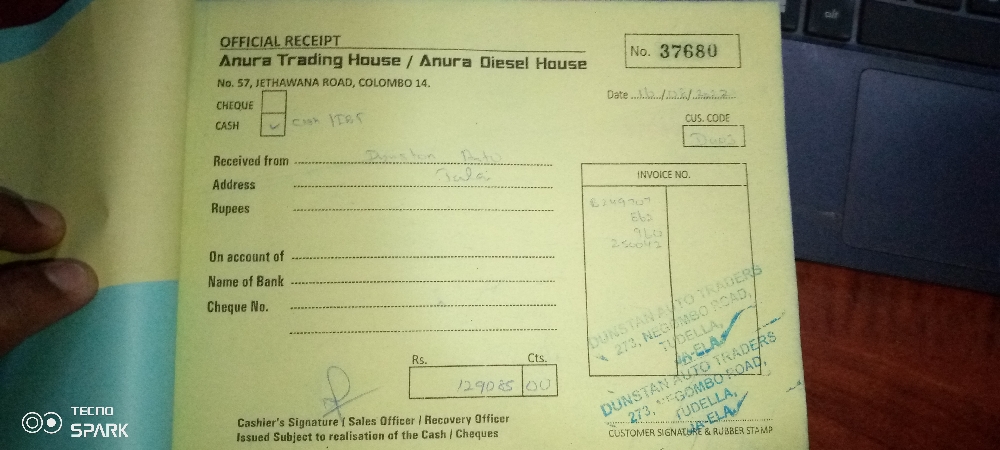 alt
OFFICIAL RECEIPT
Anura Trading House / Anura Diesel House
No. 57, JETHAWANA ROAD, COLOMBO 14.
No. 37680
Date 16/08/2022
CHEQUE
CASH ✓ Cash
CUS. CODE
Received from Dunstan Auto
Address
Rupees
On account of
Name of Bank
Cheque No.
INVOICE NO.
E249707
862
960
250042
DUNSTAN AUTO TRADERS
273, NEGOMBO ROAD,
TUDELLA,
JA-ELA.
DUNSTAN AUTO TRADERS
273, NEGOMBO ROAD,
TUDELLA,
JA-ELA.
Rs. Cts.
129085 00
Cashier's Signature / Sales Officer / Recovery Officer
Issued Subject to realisation of the Cash / Cheques
CUSTOMER SIGNATURE & RUBBER STAMP
TECNO
SPARK